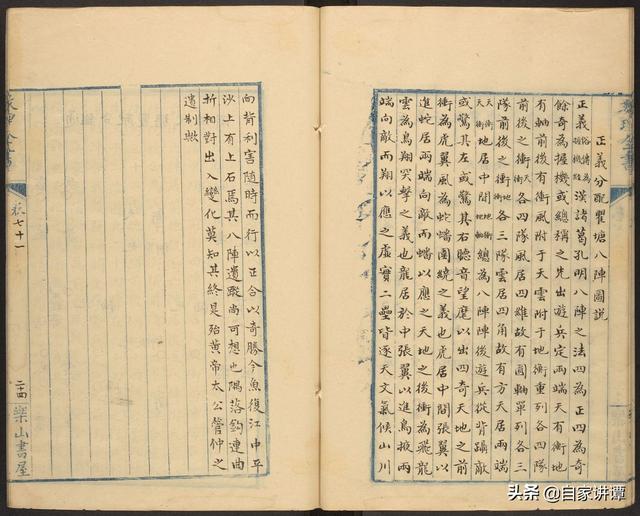 正義分配瞿塘八陣圖說
正義漢諸葛孔明八陣之法四為正四為奇
餘奇為握機或總稱之先出遊兵定兩端天有衡地
有軸前後有衝風附于天雲附于地衡重列各四隊
前後之衝天衝各四隊風居四維故有圓軸單列各三
隊前後之衝地衝各三隊雲居四角故有方天居兩端
天衝天衡地居中間地衝地軸總為八陣陣後遊兵從背躡敵
或驚其左或驚其右聽音望麾以出四奇天地之前
衝為虎翼風為蛇蟠圍繞之義也虎居中間張翼以
進蛇居兩端向敵而蟠以應之天地之後衝為飛龍
雲為鳥翔突擊之義也龍居於中張翼以進鳥掖兩
端向敵而翔以應之虛實二壘皆逐天文氣候山川
向背利害隨時而行以正合以奇勝今魚復江中平
沙上有上石焉其八陣遺蹤尚可想也隅落鈎連曲
折相對出入變化莫知其終是殆黃帝太公管仲之
遺制歟
卷七十一
二十四
樂山書屋
头条 @自家讲谭